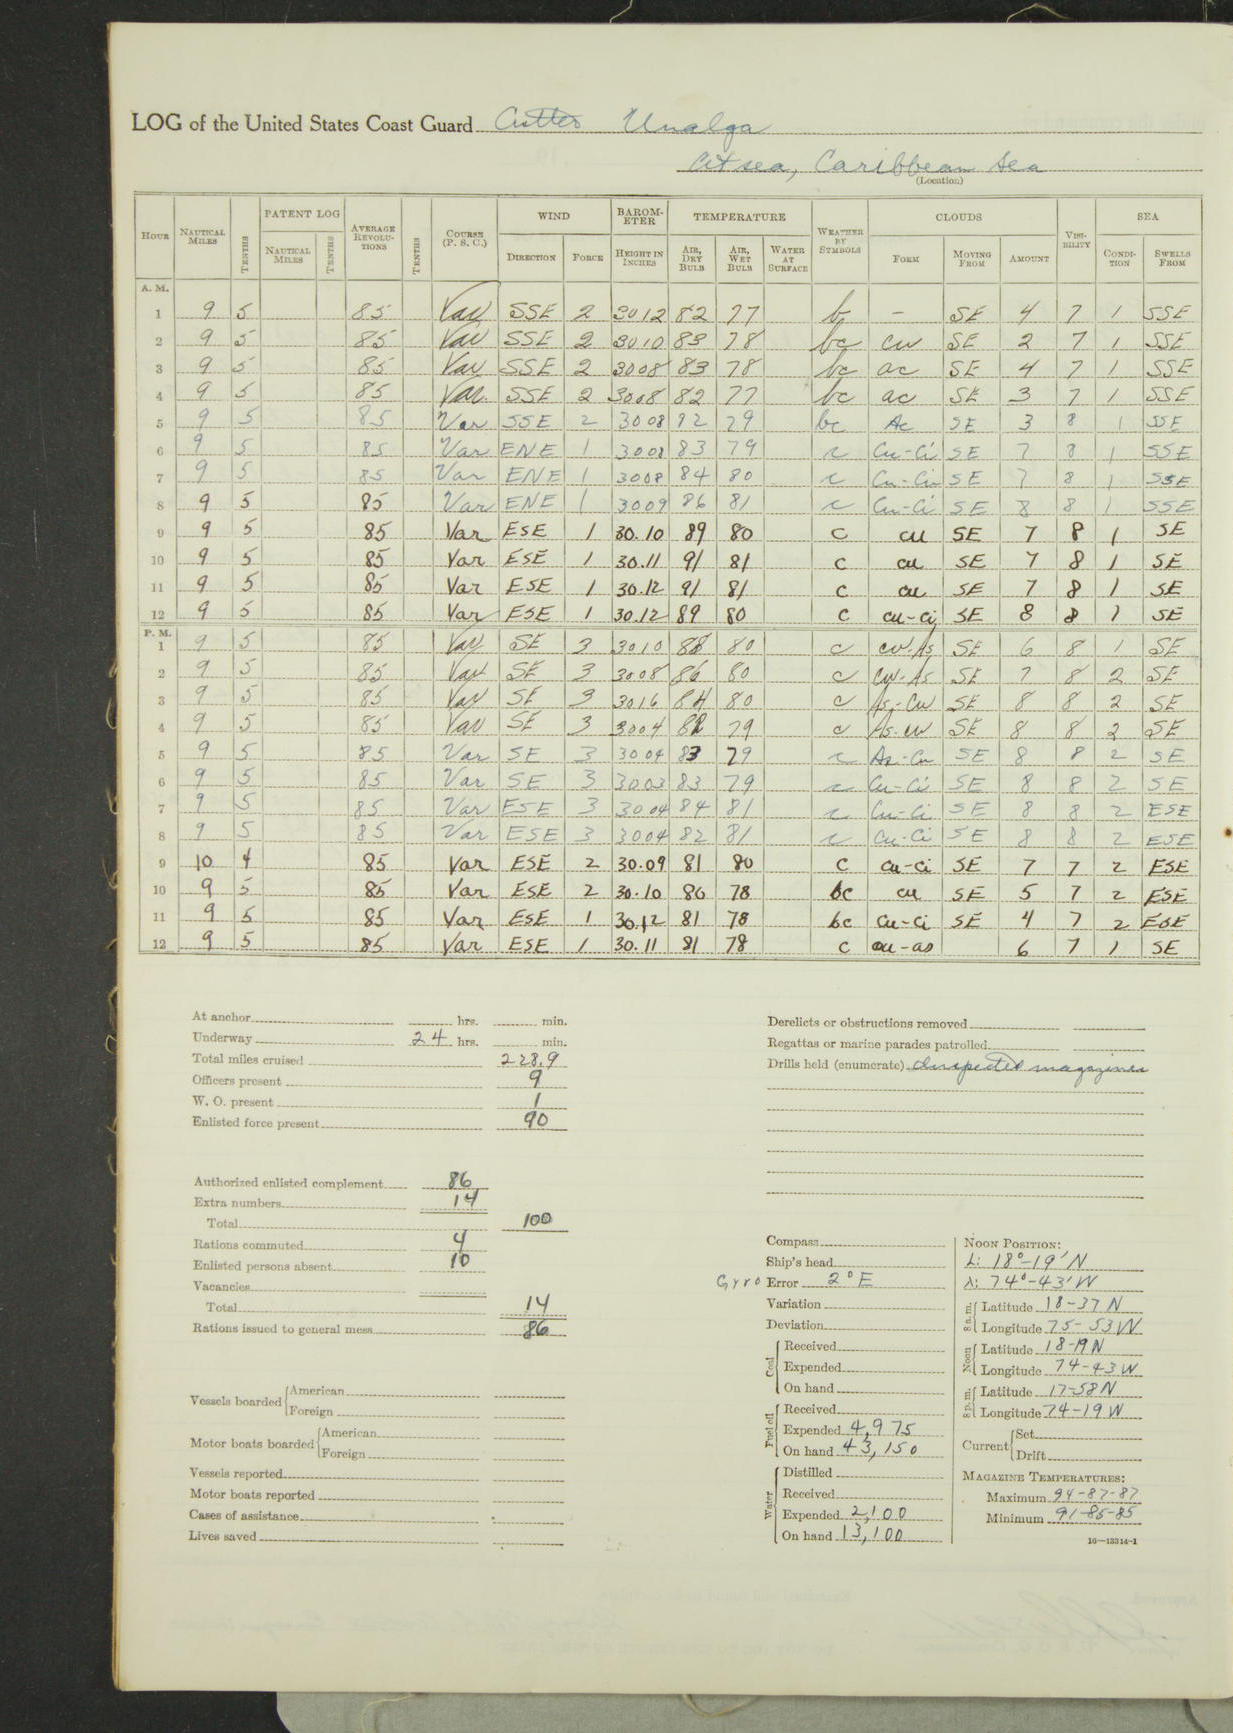 LOG of the United States Coast Guard Cutter Unalga
At sea, Caribbean Sea
(Location)
HOUR NAUTICAL MILES TENTHS PATENT LOG NAUTICAL MILES TENTHS AVERAGE REVOLUTIONS TENTHS COURSE (P. S. C.) WIND DIRECTION FORCE BAROMETER HEIGHT IN INCHES TEMPERATURE AIR, DRY BULB AIR, WET BULB WATER AT SURFACE WEATHER BY SYMBOLS CLOUDS FORM MOVING FROM AMOUNT VISIBILITY SEA CONDITION SWELLS FROM
A. M.
1 9 5 85 Var SSE 2 3012 82 77 b - SE 4 7 1 SSE
2 9 5 85 Var SSE 2 3010 83 78 bc cu SE 2 7 1 SSE
3 9 5 85 Var SSE 2 3008 83 78 bc ac SE 4 7 1 SSE
4 9 5 85 Var. SSE 2 3008 82 77 bc ac SE 3 7 1 SSE
5 9 5 85 Var SSE 2 3008 82 79 bc Ac SE 3 8 1 SSE
6 9 5 85 Var ENE 1 3008 83 79 c Cu-Ci SE 7 8 1 SSE
7 9 5 85 Var ENE 1 3008 84 80 c Cu-Ci SE 7 8 1 SSE
8 9 5 85 Var ENE 1 3009 86 81 c Cu-Ci SE 8 8 1 SSE
9 9 5 85 Var ESE 1 30.10 89 80 c cu SE 7 8 1 SE
10 9 5 85 Var ESE 1 30.11 91 81 c cu SE 7 8 1 SE
11 9 5 85 Var ESE 1 30.12 91 81 c cu SE 7 8 1 SE
12 9 5 85 Var ESE 1 30.12 89 80 c cu-ci SE 8 8 1 SE
P. M.
1 9 5 85 Var SE 3 3010 88 80 c cu-As SE 6 8 1 SE
2 9 5 85 Var SE 3 3008 86 80 c Cu-As SE 7 8 2 SE
3 9 5 85 Var SE 3 3016 84 80 c As-Cu SE 8 8 2 SE
4 9 5 85 Var SE 3 3004 82 79 c As-cu SE 8 8 2 SE
5 9 5 85 Var SE 3 3004 83 79 c As-Cu SE 8 8 2 SE
6 9 5 85 Var SE 3 3003 83 79 c Cu-Ci SE 8 8 2 SE
7 9 5 85 Var ESE 3 3004 84 81 c Cu-Ci SE 8 8 2 ESE
8 9 5 85 Var ESE 3 3004 82 81 c Cu-Ci SE 8 8 2 ESE
9 10 4 85 Var ESE 2 30.09 81 80 c cu-ci SE 7 7 2 ESE
10 9 5 85 Var ESE 2 30.10 80 78 bc cu SE 5 7 2 ESE
11 9 5 85 Var ESE 1 30.12 81 78 bc cu-ci SE 4 7 2 ESE
12 9 5 85 Var ESE 1 30.11 81 78 c cu-as 6 7 1 SE
At anchor hrs. min.
Underway 24 hrs. min.
Total miles cruised 228.9
Officers present 9
W. O. present 1
Enlisted force present 90
Authorized enlisted complement 86
Extra numbers 14
Total 100
Rations commuted 4
Enlisted persons absent 10
Vacancies
Total 14
Rations issued to general mess 86
Vessels boarded American
Foreign
Motor boats boarded American
Foreign
Vessels reported
Motor boats reported
Cases of assistance
Lives saved
Derelicts or obstructions removed
Regattas or marine parades patrolled
Drills held (enumerate) Inspected magazines
Compass
Ship's head
Gyro Error 2° E
Variation
Deviation
Coal Received
Expended
On hand
Fuel oil Received
Expended 4,975
On hand 43,150
Water Distilled
Received
Expended 2,100
On hand 13,100
NOON POSITION:
L: 18°-19' N
λ: 74°-43' W
8 a. m. Latitude 18-37 N
Longitude 75-53 W
Noon Latitude 18-19 N
Longitude 74-43 W
8 p. m. Latitude 17-58 N
Longitude 74-19 W
Current Set
Drift
MAGAZINE TEMPERATURES:
Maximum 94-87-87
Minimum 91-85-85
16—13314-1